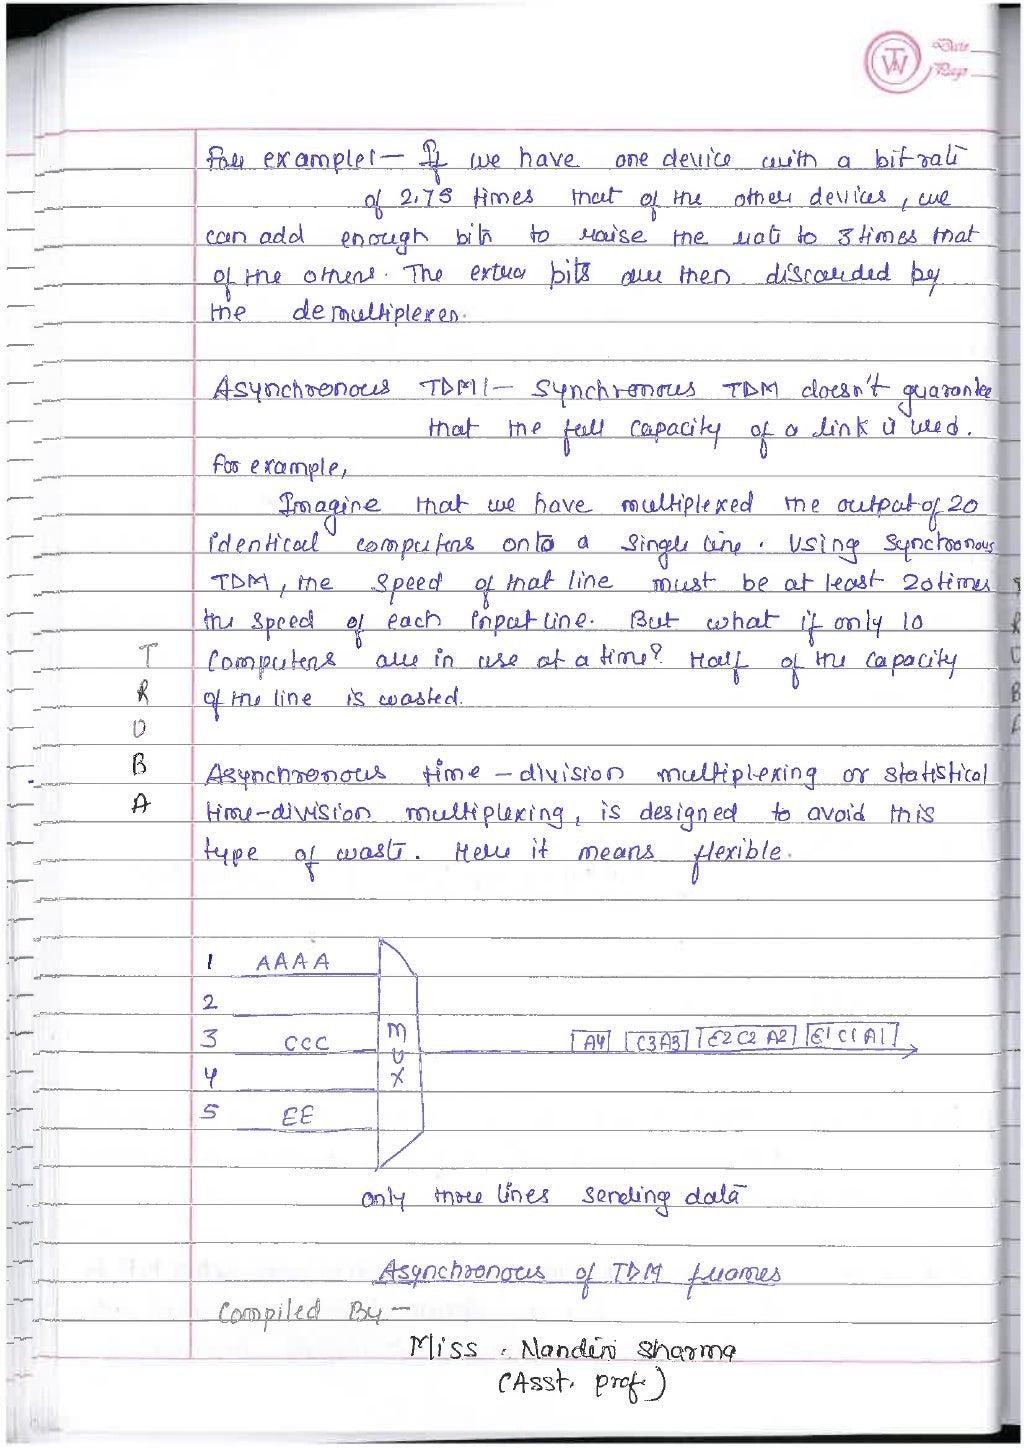 Date
Page
For example:- If we have one device with a bit rate
of 2.75 times that of the other devices, we
can add enough bits to raise the rate to 3 times that
of the others. The extra bits are then discarded by
the demultiplexer.
Asynchronous TDM:- Synchronous TDM doesn't guarantee
that the full capacity of a link is used.
For example,
Imagine that we have multiplexed the output of 20
identical computers onto a single line. Using Synchronous
TDM, the speed of that line must be at least 20 times
the speed of each input line. But what if only 10
Computers are in use at a time? Half of the capacity
of the line is wasted.
Asynchronous time-division multiplexing or statistical
time-division multiplexing, is designed to avoid this
type of waste. Here it means flexible.
T
R
U
B
A
1 AAAA
2
3 CCC
4
5 EE
MUX
A4 C3A3 E2 C2 A2 E1 C1 A1
only three lines sending data
Asynchronous of TDM frames
Compiled By -
Miss. Nandini Sharma
(Asst. prof.)